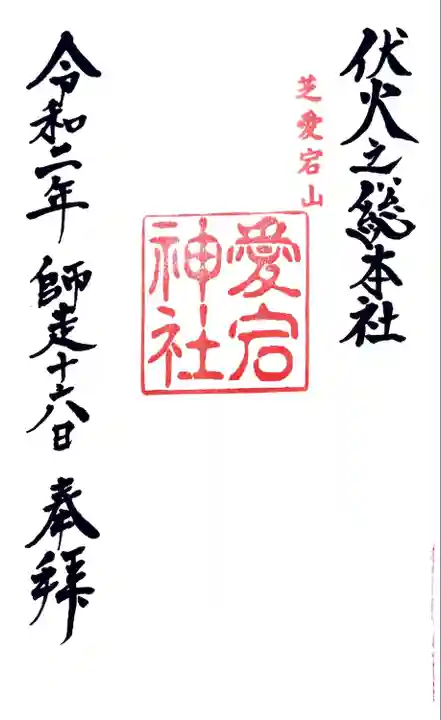 伏火之総本社
芝愛宕山
愛宕
神社
令和二年 師走十六日 奉拝